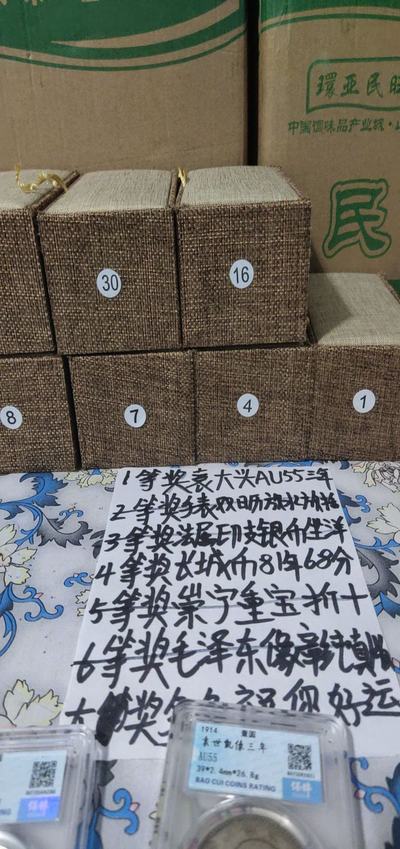 環亚民旺
中国调味品产业
民
30
16
8
7
4
1
1等奖袁大头AU55三年
2等奖手表双日历
3等奖法属印支银币坐洋
4等奖长城币81年68分
5等奖崇宁重宝折十
6等奖毛泽东像章纯
大奖 祝你好运
1914 壹圆
袁世凯像三年
AU55
39*2.4mm*26.8g
BAO CUI COINS RATING